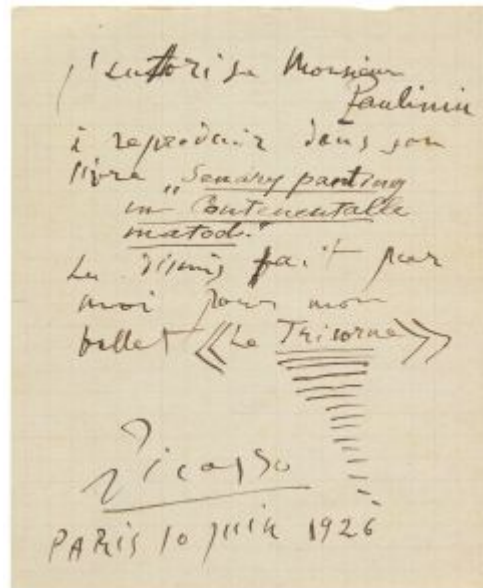 j'autorise Monsieur
Paulinin
à reproduir dans son
livre "Senary panting
in Contenentalle
matods."
Le dismis fait par
moi pour mon
ballet «Le Tricorne»
Picasso
PARis 10 juin 1926